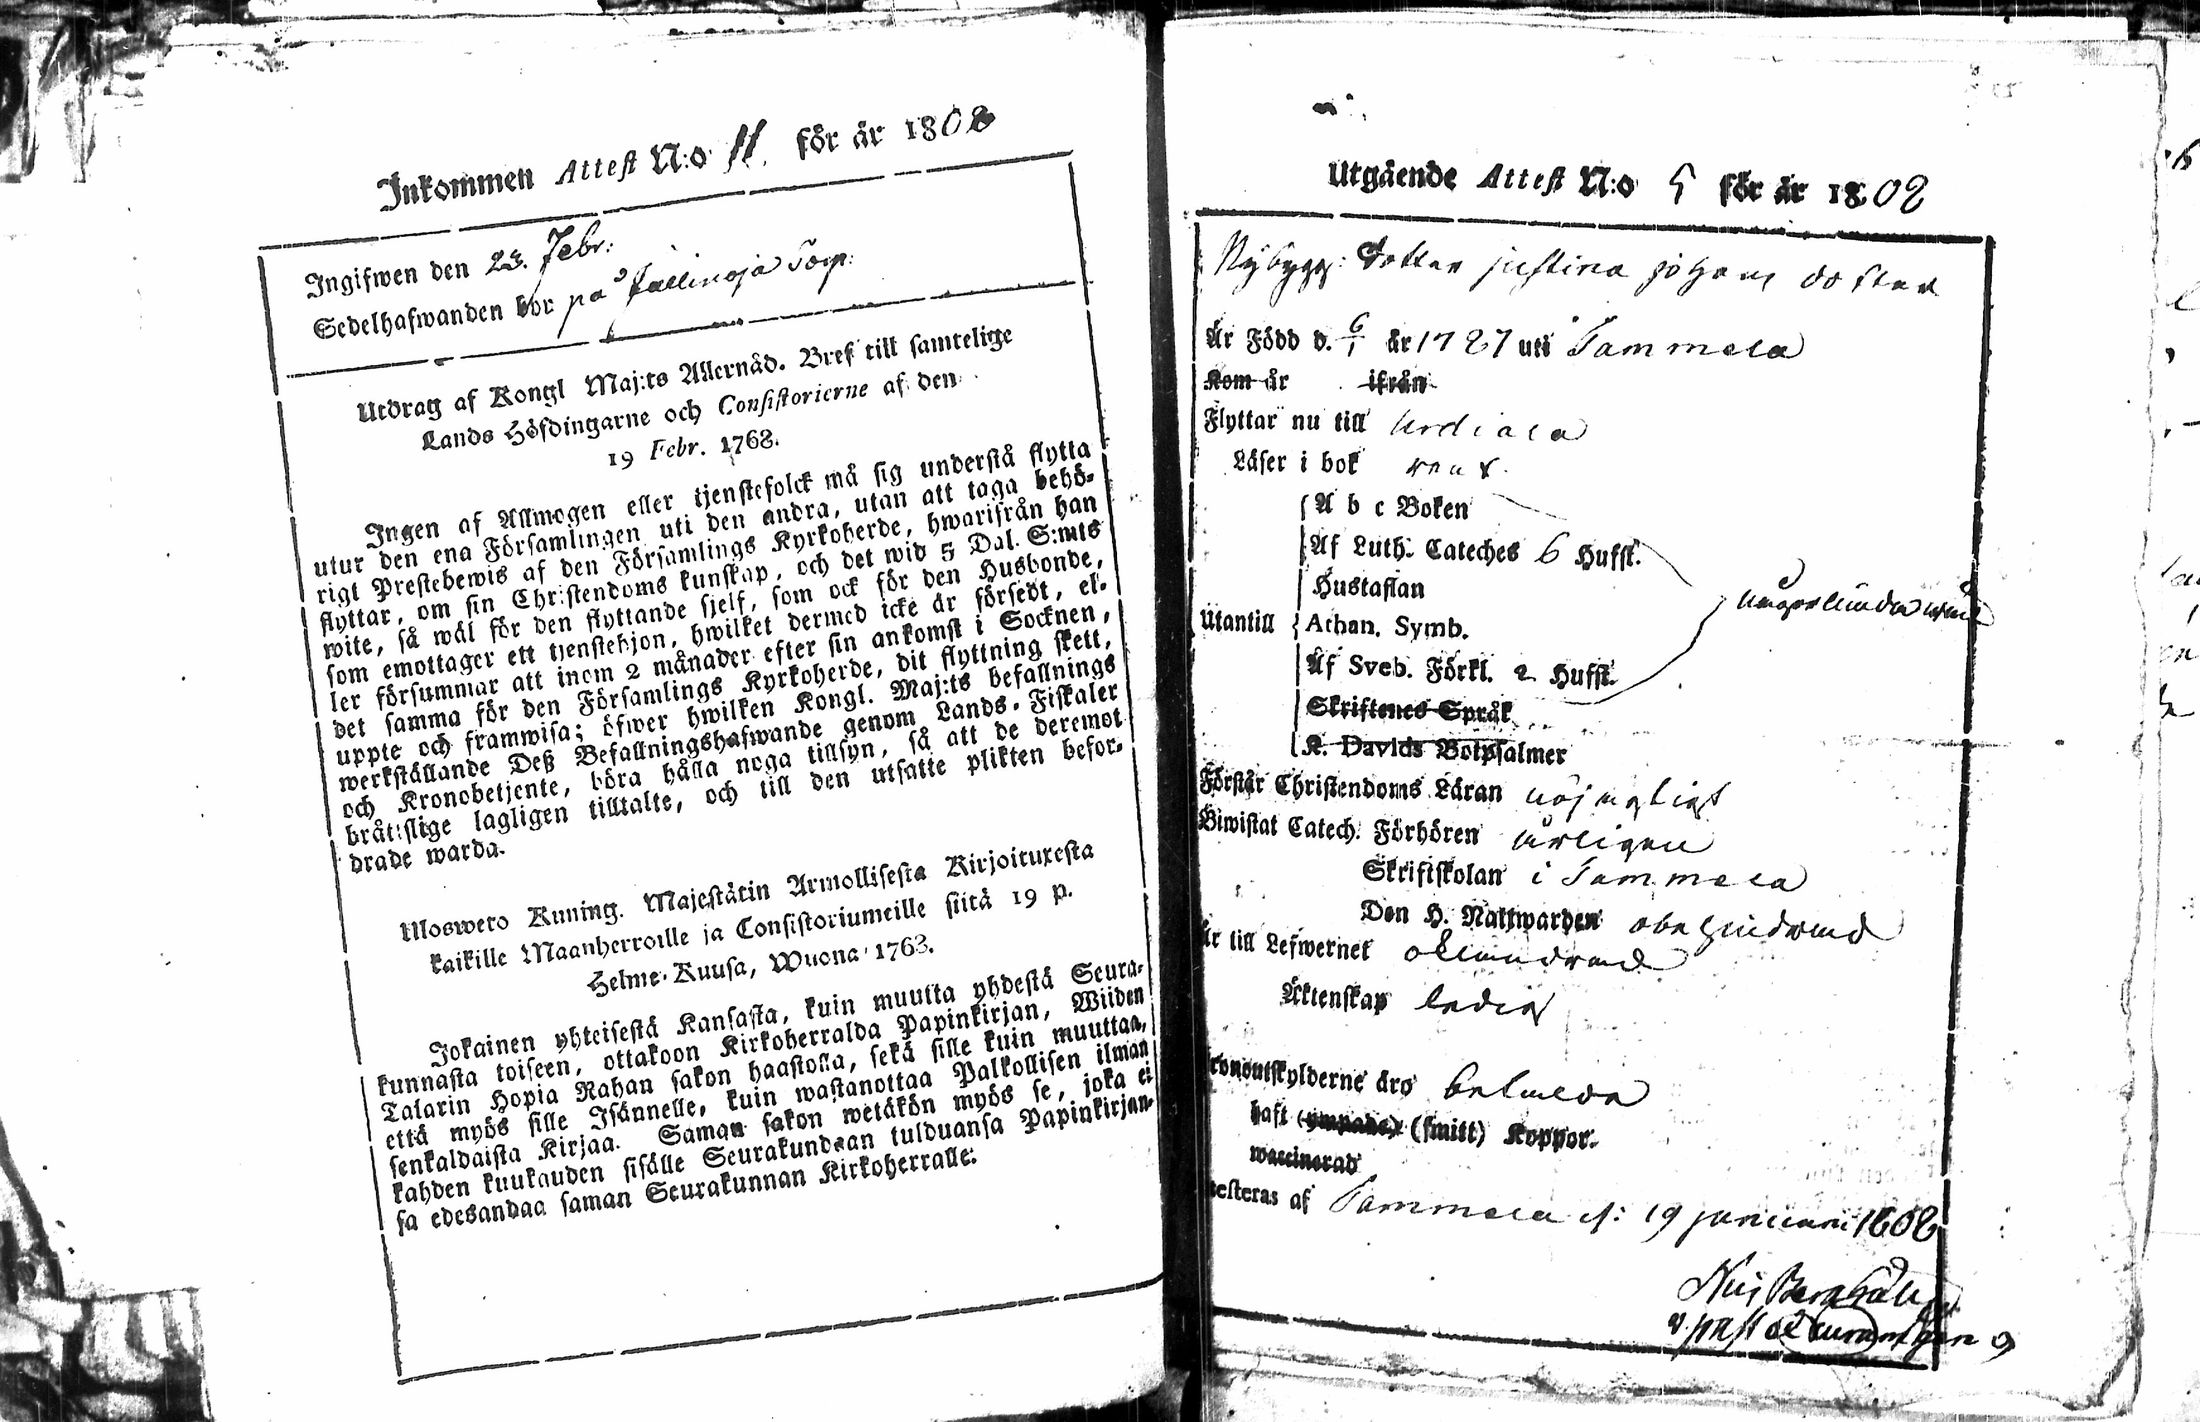 Inkommen Attest N:o 11. för år 1808
Ingifwen den 23. Febr:
Sedelhafwanden bor på Torp:
Utdrag af Kongl Maj:ts Allernåd. Bref till samtelige
Lands Höfdingarne och Consistorierne af den
19 Febr. 1763.
Ingen af Allmogen eller tjenstefolck må sig understå flytta
utur den ena Församlingen uti den andra, utan att taga behö-
rigt Prestebewis af den Församlings Kyrkoherde, hwarifrån han
flyttar, om sin Christendoms kunskap, och det wid 5 Dal. S:mts
wite, så wäl för den flyttande sjelf, som ock för den Husbonde,
som emottager ett tjenstehjon, hwilket dermed icke är försedt, el-
ler försummar att inom 2 månader efter sin ankomst i Socknen,
det samma för den Församlings Kyrkoherde, dit flyttning skett,
uppte och framwisa; öfwer hwilken Kongl. Maj:ts befallnings
werkställande Deß Befallningshafwande genom Lands-Fiskaler
och Kronobetjente, böra hålla noga tillsyn, så att de deremot
bråttslige lagligen tilltalte, och till den utsatte plikten befor-
drade warda.
Uloswero Kuning. Majestätin Armollisesta Kirjoituxesta
kaikille Maanherroille ja Consistoriumeille siitä 19 p.
Helme-Kuusa, Wuona 1763.
Jokainen yhteisestä Kansasta, kuin muutta yhdestä Seura-
kunnasta toiseen, ottakoon Kirkoherralda Papinkirjan, Wiiden
Talarin Hopia Rahan sakon haastolla, sekä sille kuin muuttaa,
että myös sille Isännelle, kuin wastanottaa Palkollisen ilman
senkaldaista Kirjaa. Saman sakon wetäkön myös se, joka ei
kahden kuukauden sisälle Seurakundaan tulduansa Papinkirjan-
sa edesandaa saman Seurakunnan Kirkoherralle.
Utgående Attest N:o 5 för år 1808
Nybygg: dotter Justina Johans dotter
Är Född d. 6/1 år 1787 uti Tammela
Kom år ifrån
Flyttar nu till Urdiala
Läser i bok rent
A b c Boken
Af Luth. Cateches 6 Hufst.
Hustaflan
Utantill Athan. Symb.
Af Sveb. Förkl. 2 Hufst.
Skriftenes Språk
K. Davids Botpsalmer
Förstår Christendoms Läran nöjagtigt
Biwistat Catech. Förhören årligen
Skriftskolan i Tammela
Den H. Nattwarden obehindrad
Är till Lefwernet oklandrad
Äktenskap ledig
Kronoutskylderne äro betalda
haft (ympade) (smitt) Koppor.
waccinerad
testeras af Tammela d: 19 Januarii 1808